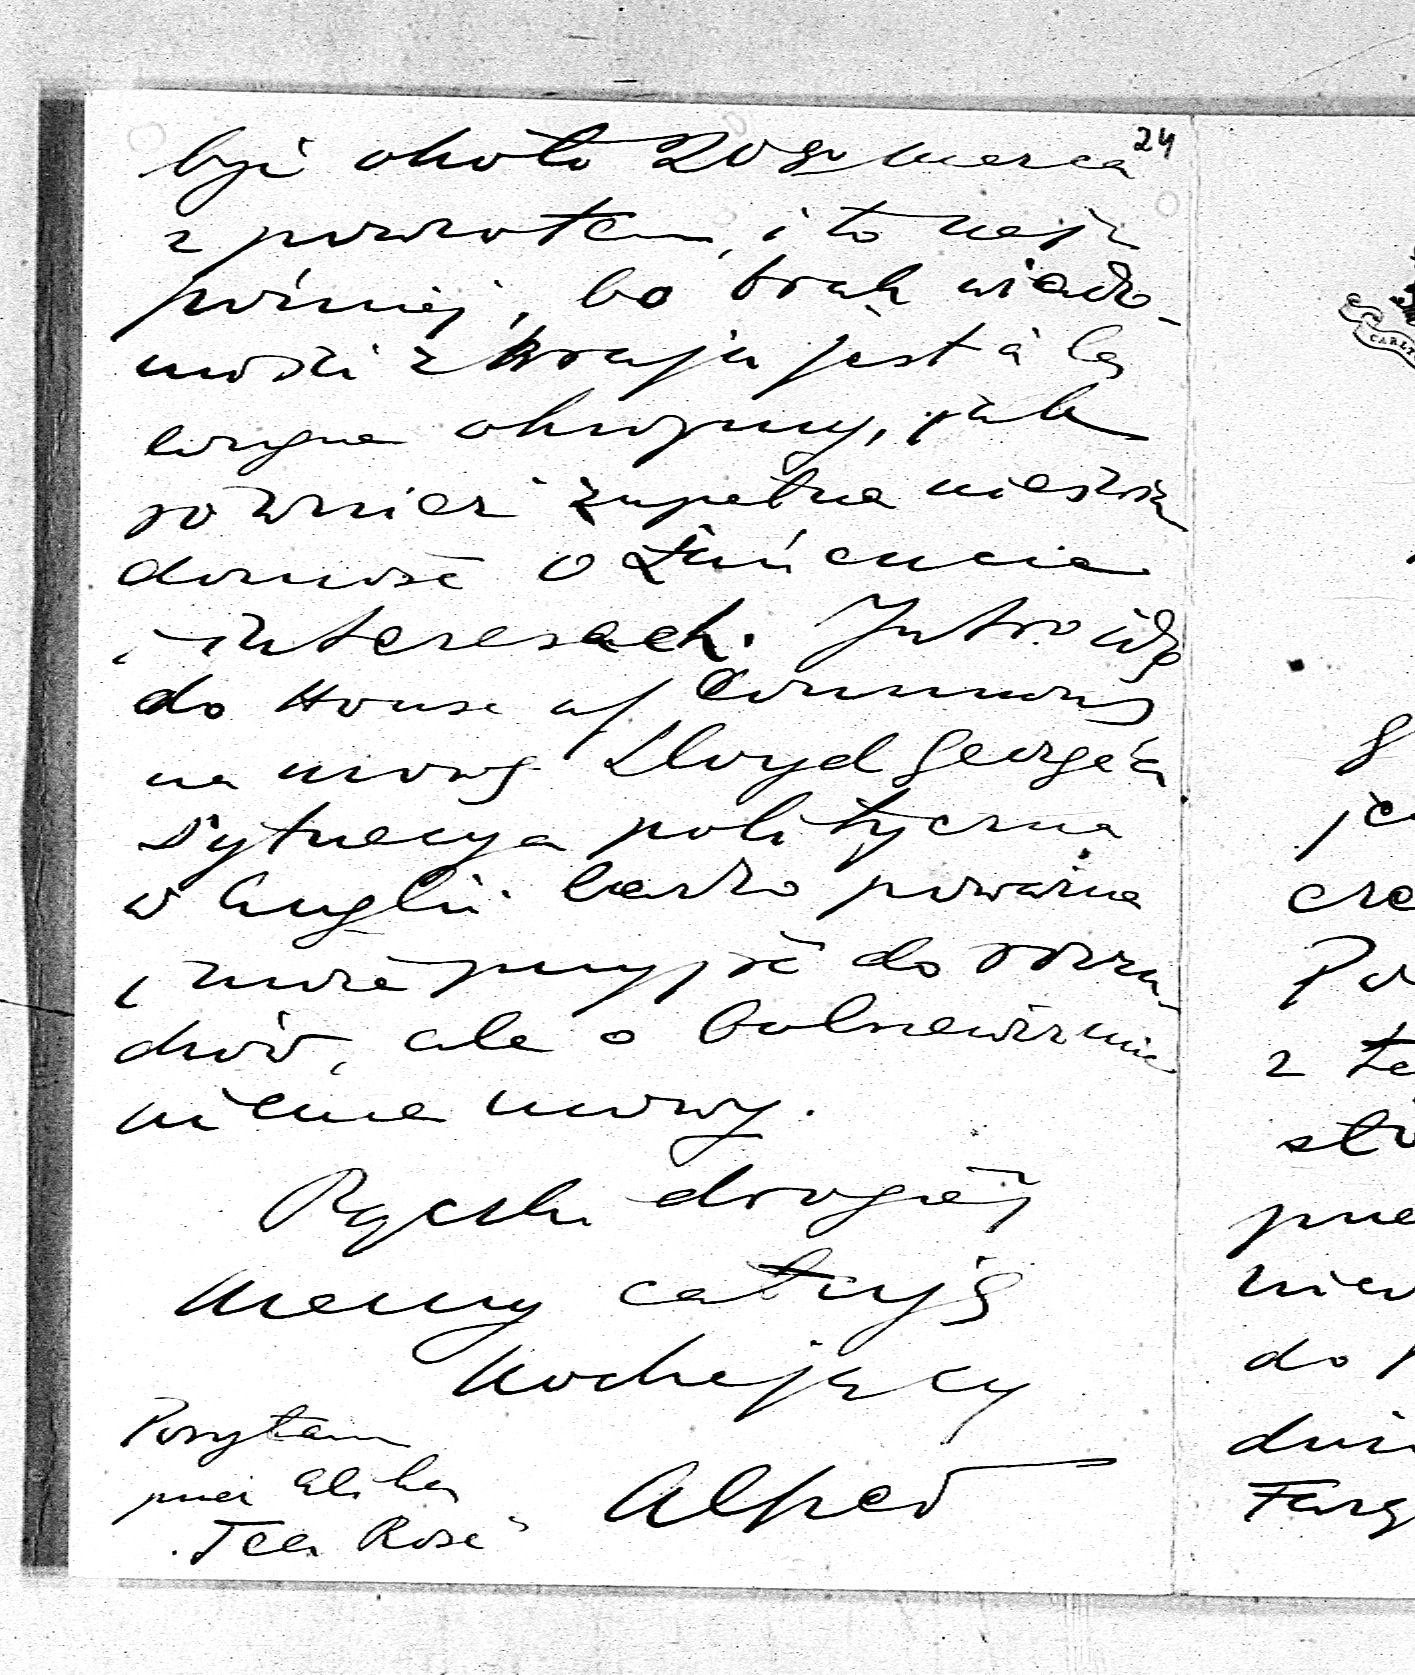 24
być około 20go marca
z powrotem, i to naj
później, bo brak wiado-
mości z kraju jest à la
longue okropny, jak
również zupełna nieświa
domość o Łańcucie
i interesach. Jutro idę
do House of Commons
na mowę Lloyd George'a
Sytuacya polityczna
w Anglii bardzo poważna
i może przyjść do rozru-
chów, ale o bolszewizmie
niema mowy.
Rączki drogiej
Mamy całuję
Kochający
Alfred
Posyłam
przez Elika
"Tea Rose"
CARLT
je
cze
Po
z te
stó
prze
niew
do